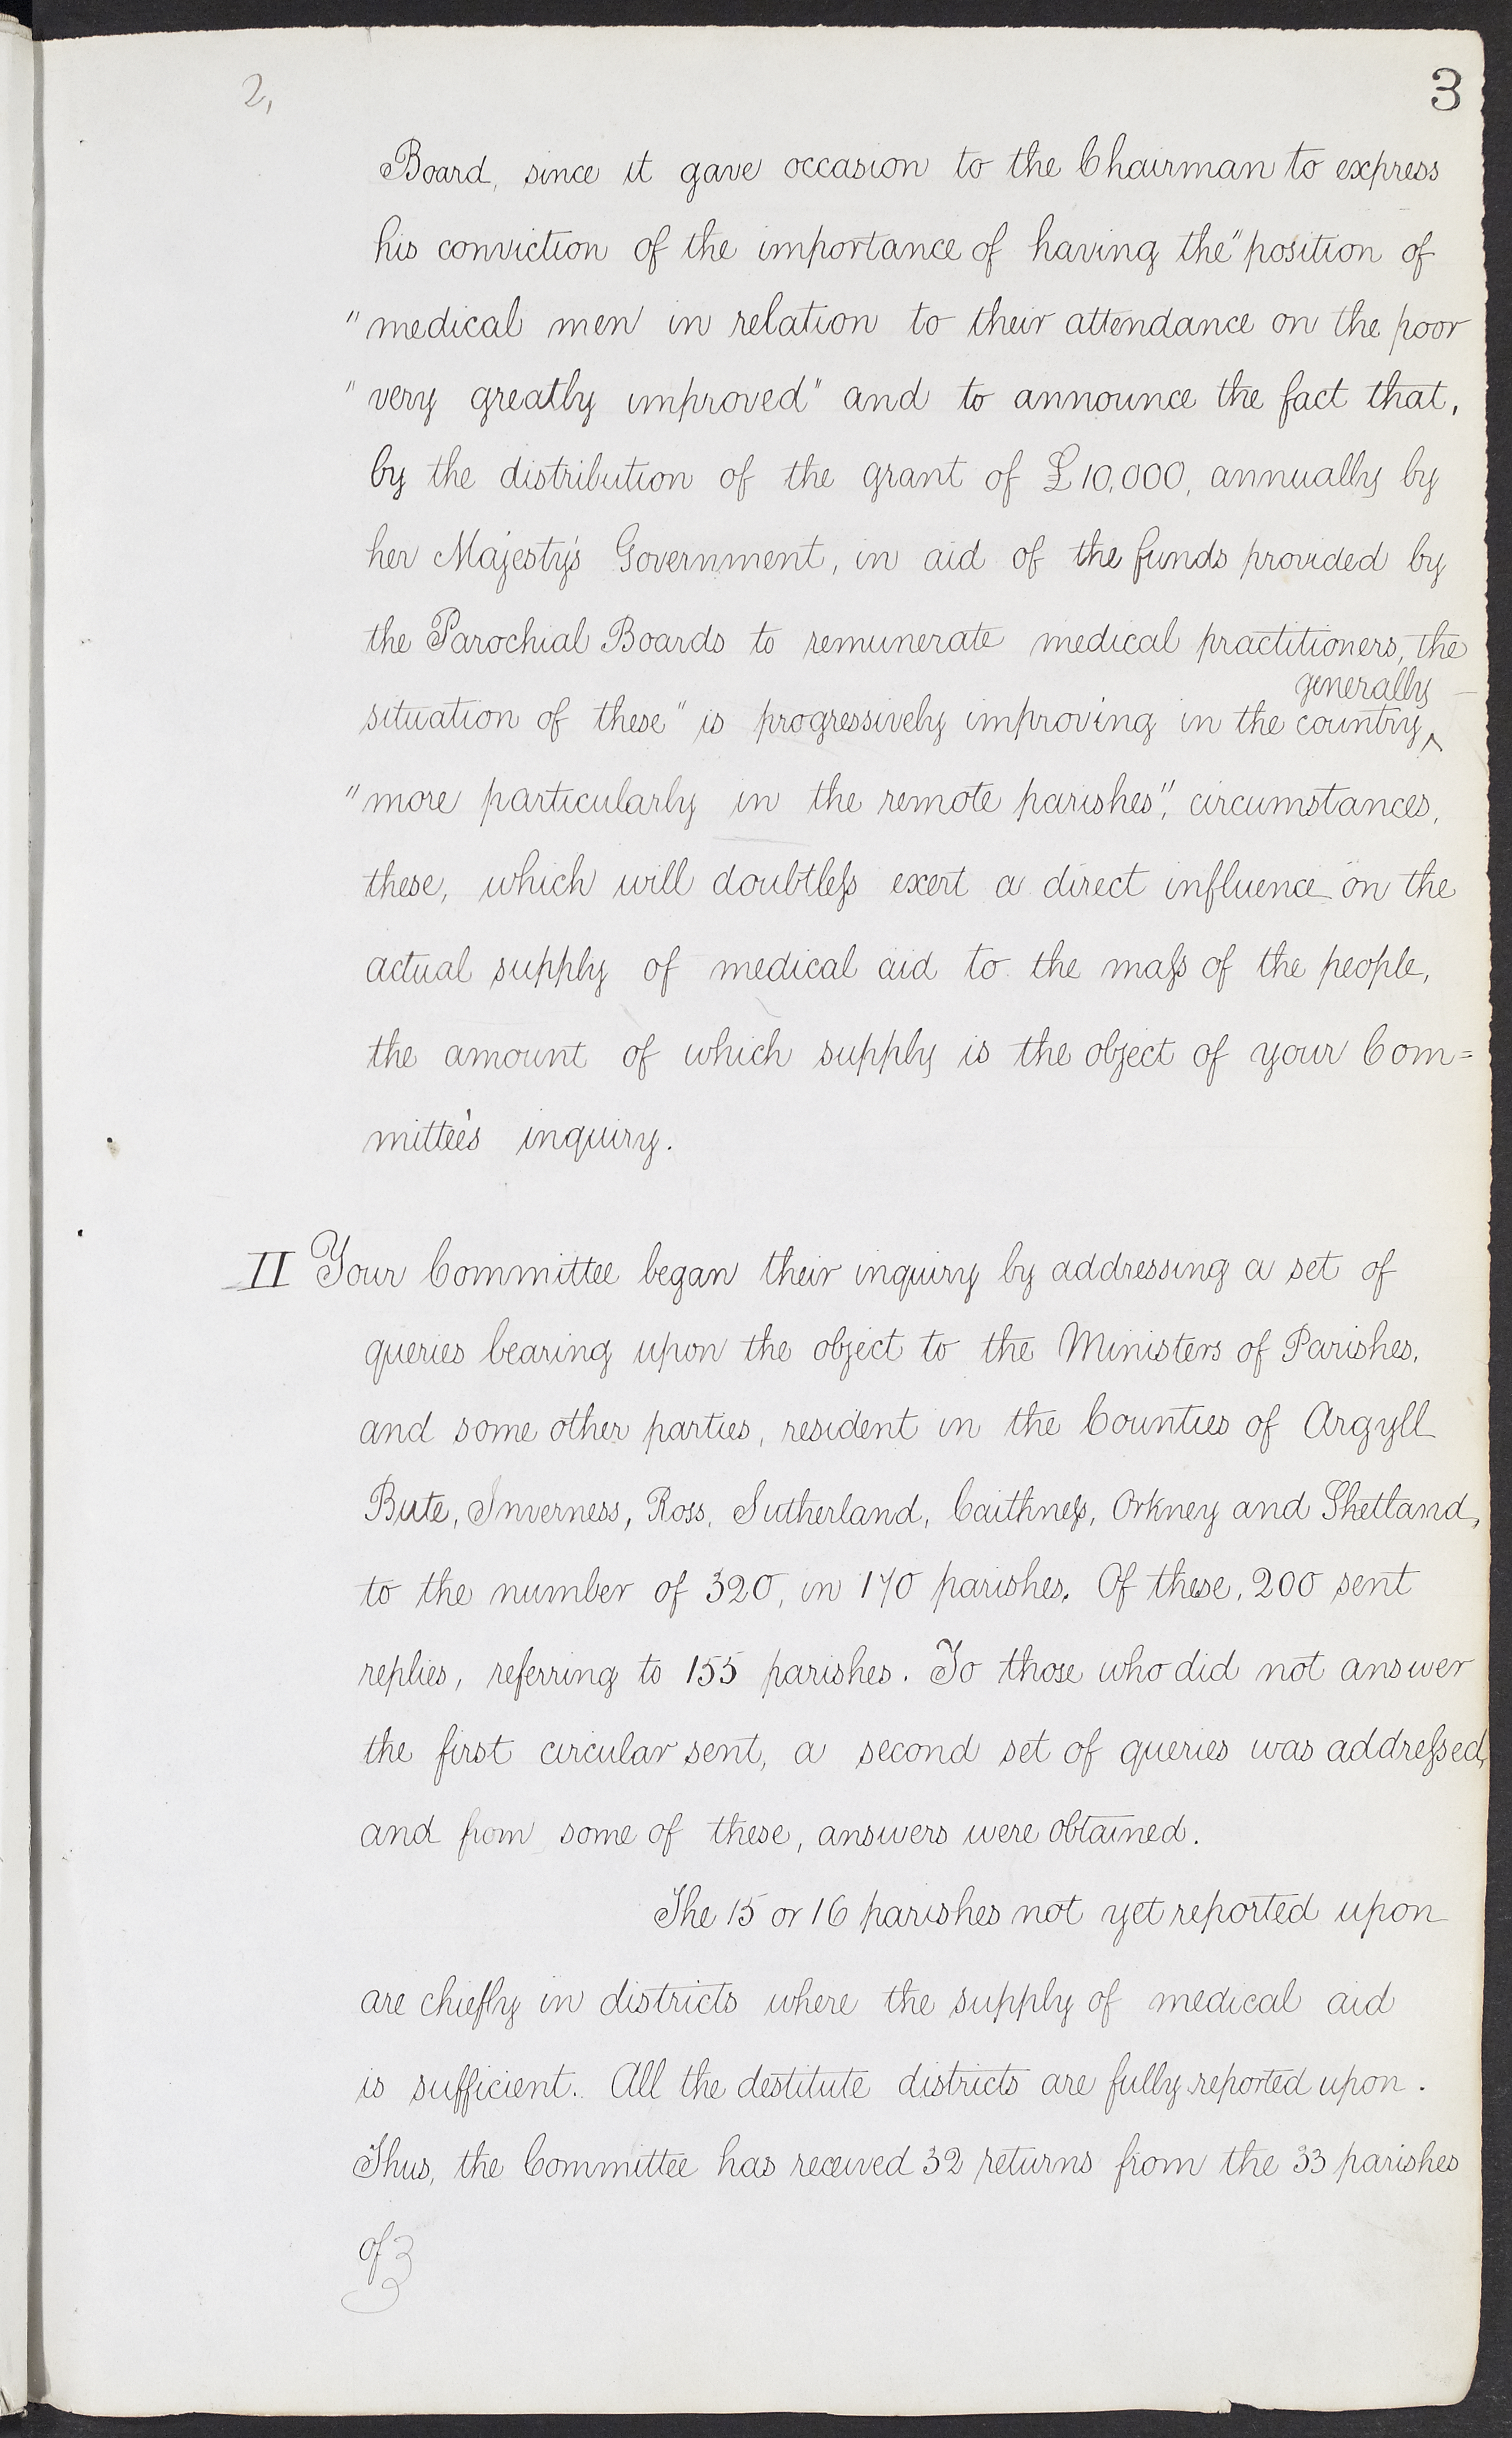 2,
3
Board, since it gave occasion to the Chairman to express
his conviction of the importance of having the "position of
"medical men in relation to their attendance on the poor
"very greatly improved" and to announce the fact that,
by the distribution of the grant of £10,000, annually by
her Majesty's Government, in aid of the funds provided by
the Parochial Boards to remunerate medical practitioners, the
generally
situation of these "is progressively improving in the country ^
"more particularly in the remote parishes", circumstances,
these, which will doubtleſs exert a direct influence on the
actual supply of medical aid to the maſs of the people,
the amount of which supply is the object of your Com=
mittee's inquiry.
II Your Committee began their inquiry by addressing a set of
queries bearing upon the object to the Ministers of Parishes,
and some other parties, resident in the Counties of Argyll
Bute, Inverness, Ross, Sutherland, Caithneſs, Orkney and Shetland,
to the number of 320, in 170 parishes. Of these, 200 sent
replies, referring to 155 parishes. To those who did not answer
the first circular sent, a second set of queries was addreſsed,
and from some of these, answers were obtained.
The 15 or 16 parishes not yet reported upon
are chiefly in districts where the supply of medical aid
is sufficient. All the destitute districts are fully reported upon.
Thus, the Committee has received 32 returns from the 33 parishes
of